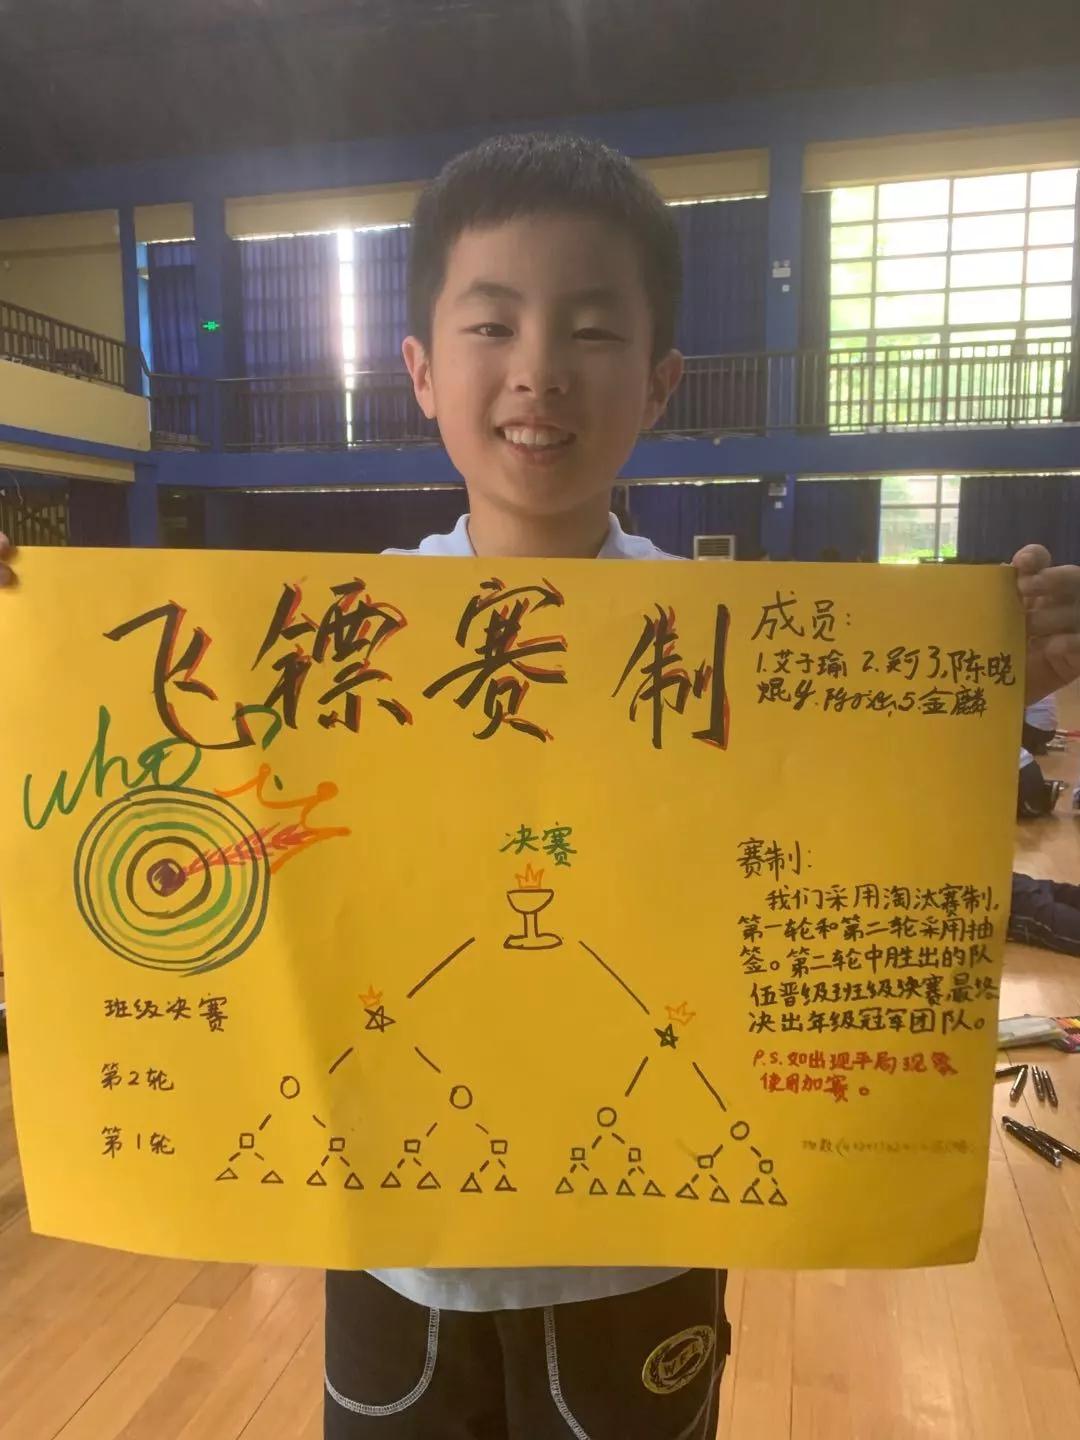 飞镖赛制
who
成员:
1.艾子瑜 2. 3,陈晓
焜 4. 5.金麟
决赛
赛制:
我们采用淘汰赛制,
第一轮和第二轮采用抽
签。第二轮中胜出的队
伍晋级班级决赛,最终
决出年级冠军团队。
P.S.如出现平局现象
使用加赛。
班级决赛
第2轮
第1轮